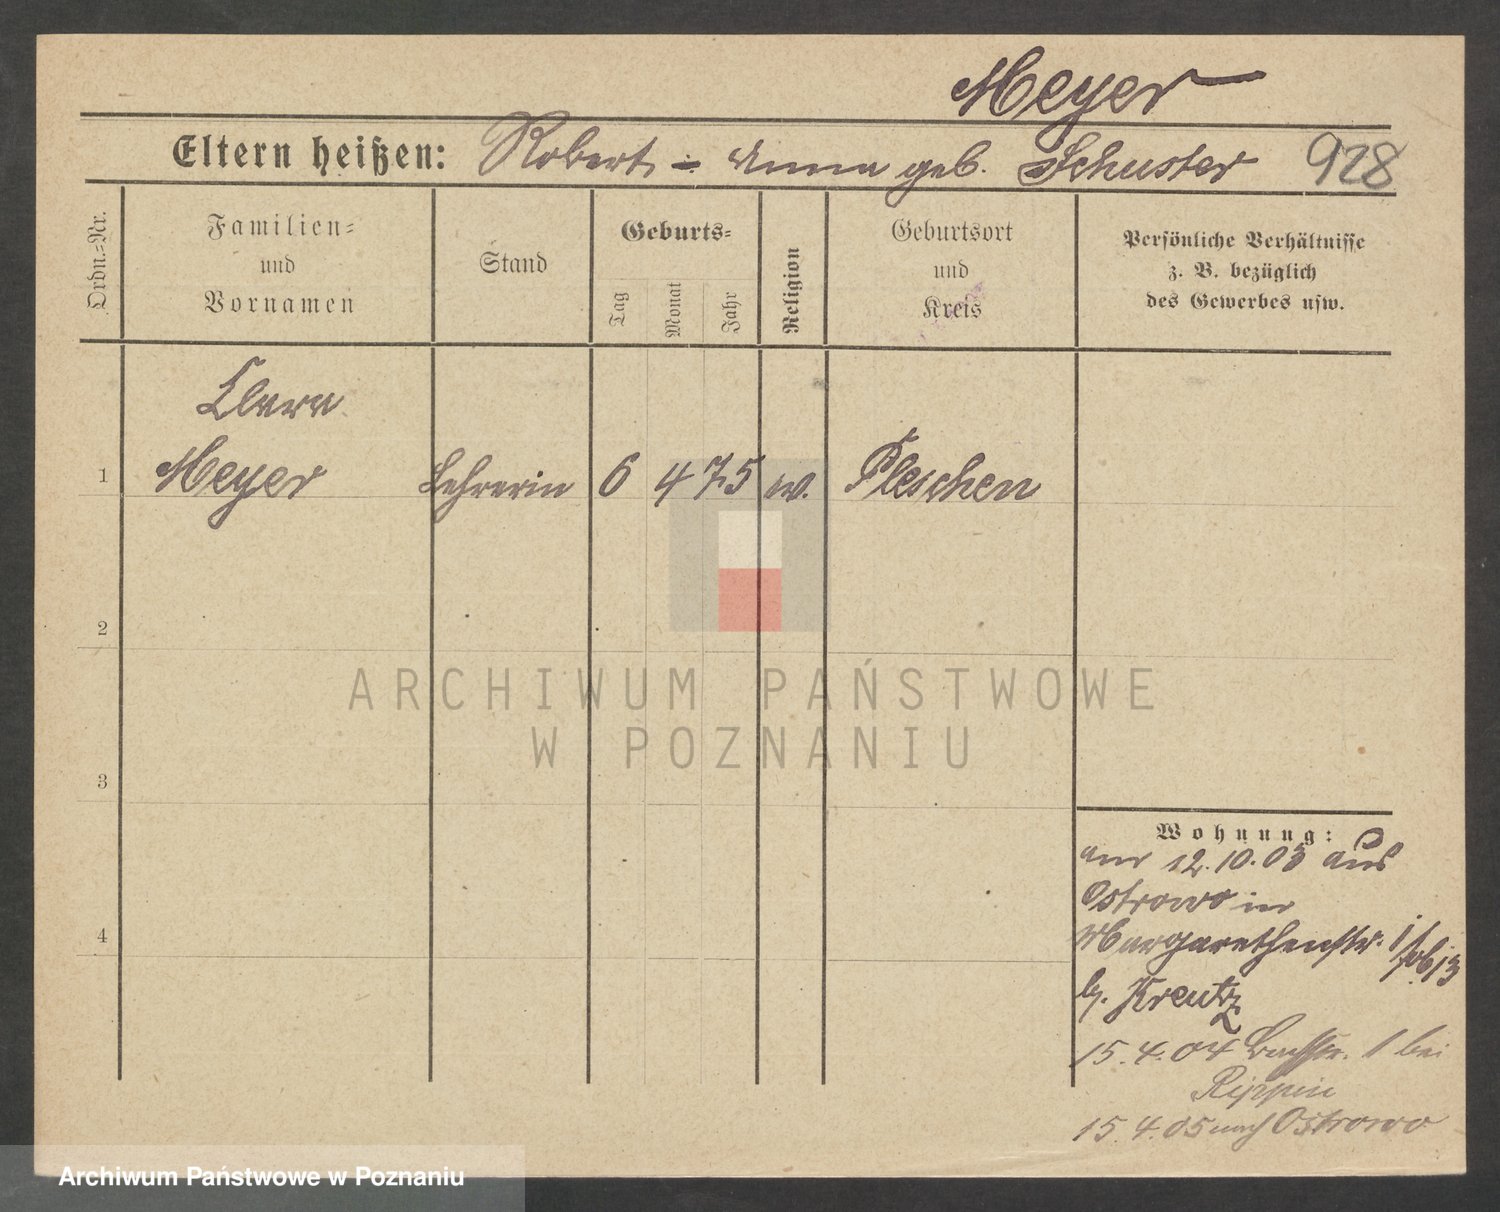 Meyer
Eltern heißen: Robert - Anna geb. Schuster 928
Ordn.-Nr.
Familien-
und
Vornamen
Stand
Geburts-
Tag
Monat
Jahr
Religion
Geburtsort
und
Kreis
Persönliche Verhältnisse
z. B. bezüglich
des Gewerbes usw.
Clara
1 Meyer Lehrerin 6 4 75 w. Pleschen
2
3
4
ARCHIWUM PAŃSTWOWE
W POZNANIU
Wohnung:
am 12.10.03 aus
Ostrowo in
Margarethenstr. 1
b. Kreutz
15.4.04 1 bei
Rippin
15.4.05 nach Ostrowo
Archiwum Państwowe w Poznaniu